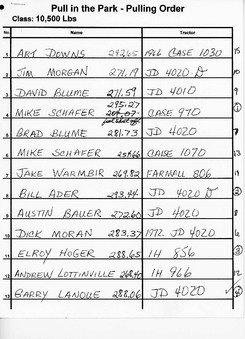 Pull in the Park - Pulling Order
Class: 10,500 Lbs
No. Name Tractor
1 ART DOWNS 242.65 1966 CASE 1030 15
2 JIM MORGAN 271.19 JD 4020 D 10
3 DAVID BLUME 271.59 JD 4010 9
295.27
4 MIKE SCHAFER CASE 970 1
5 BRAD BLUME 281.73 JD 4020 7
6 MIKE SCHAFER CASE 1070 13
7 JAKE WARMBIR 269.82 FARMALL 806 11
8 BILL ADER 293.44 JD 4020 D 2
9 AUSTIN BAUER 272.60 JD 4020 8
10 DICK MORAN 283.37 1972 JD 4020
11 ELROY HOGER 288.65 IH 856 3
12 ANDREW LOTTINVILLE 268.40 IH 966 12
13 GARRY LANOUE 288.06 JD 4020 4